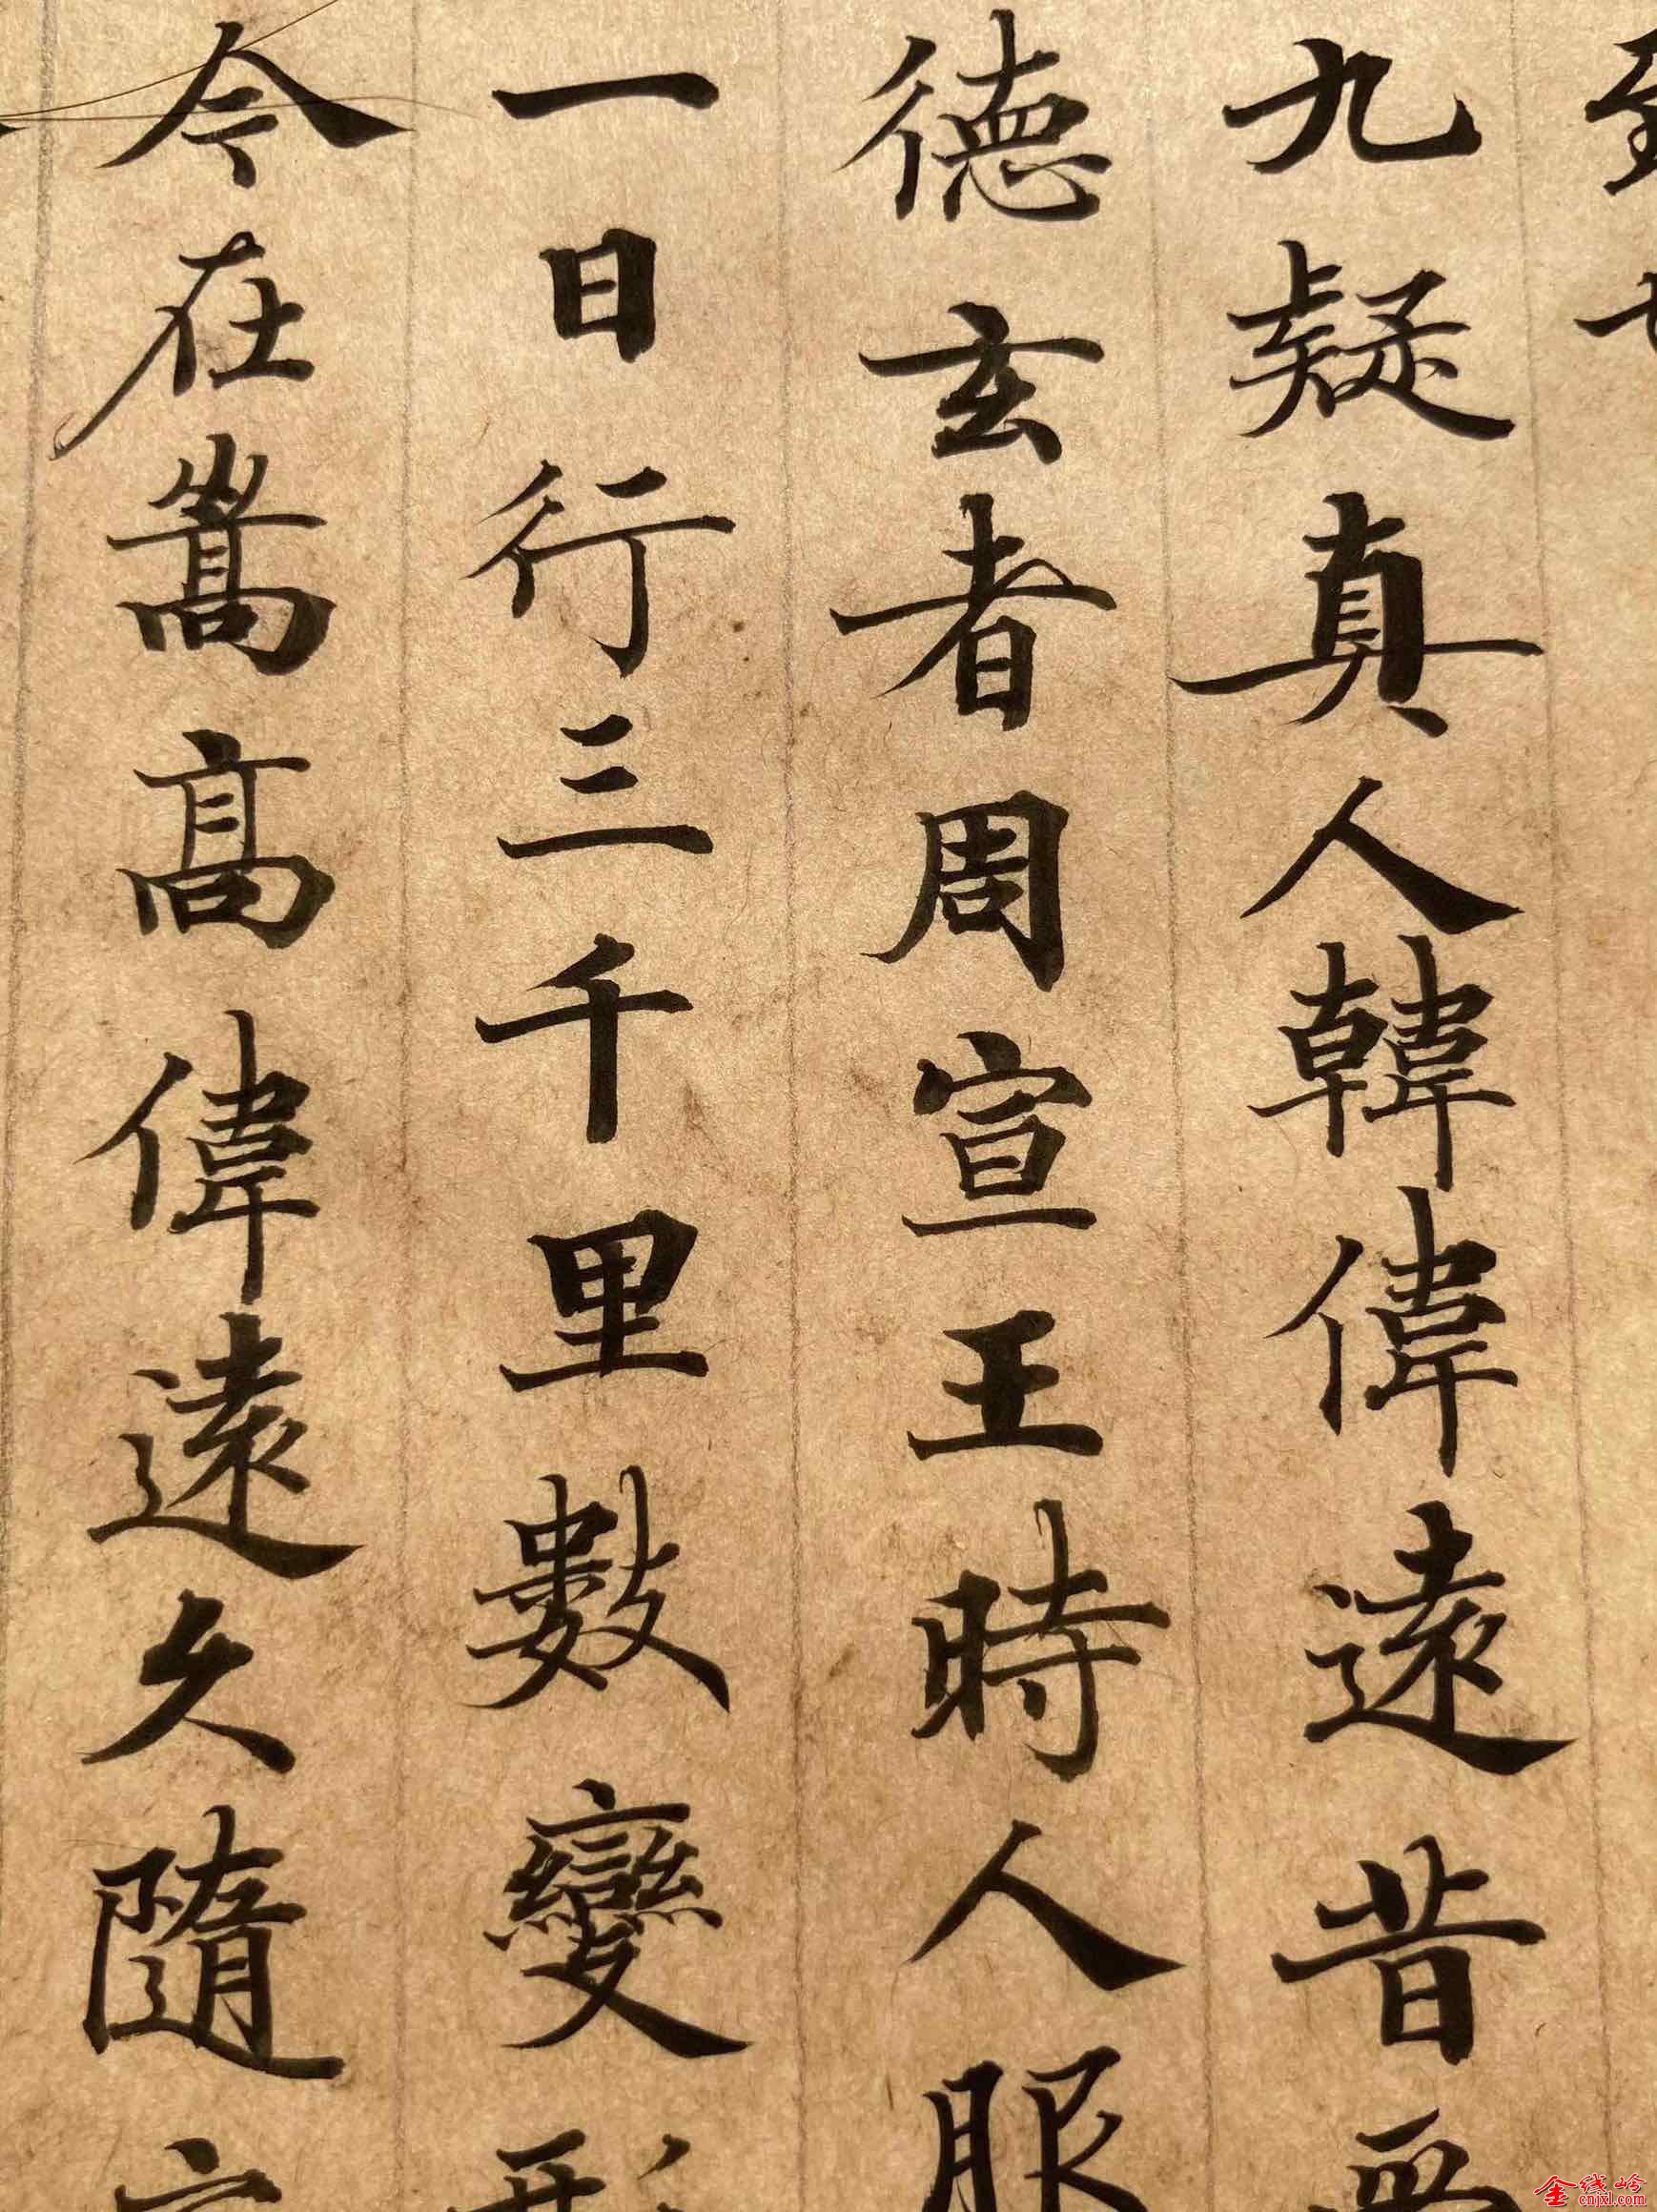 九疑真人韓偉遠昔
德玄者周宣王時人服
一日行三千里數變形
今在嵩高偉遠久隨
金线岭
cnjxl.com